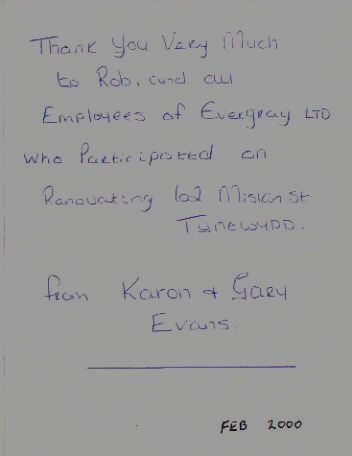 Thank You Very Much
to Rob, and all
Employees of Evergray LTD
who Participated on
Renovating 62 Miskin St
Tynewydd.
from Karon & Gary
Evans.
FEB 2000